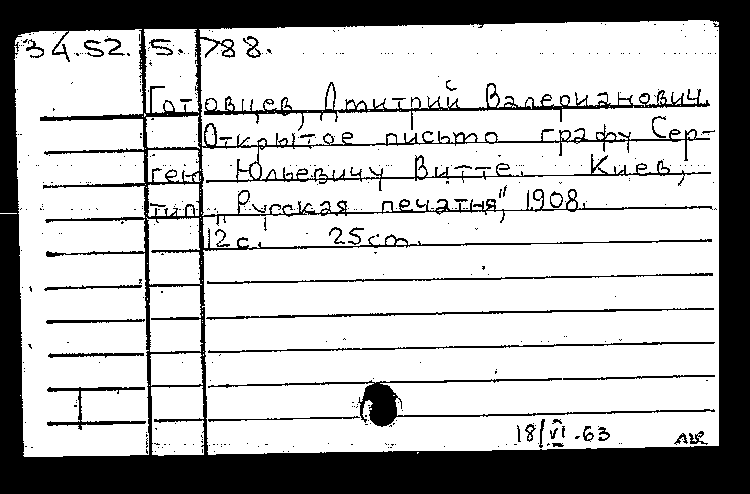 34.52. 5. 788.
Готовцев, Дмитрий Валерианович.
Открытое письмо графу Сер-
гею Юльевичу Витте. Киев,
тип. „Русская печатня", 1908.
12 с. 25 cm.
18/VI.63